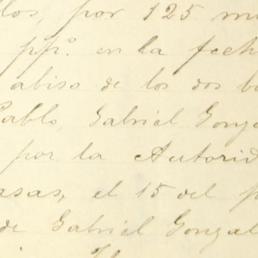 los, por 125 m
pp.º en la fech
abiso de los dos b
Pablo, Gabriel Gonz
por la Autorid
asas, el 15 del p
de Gabriel Gonzal